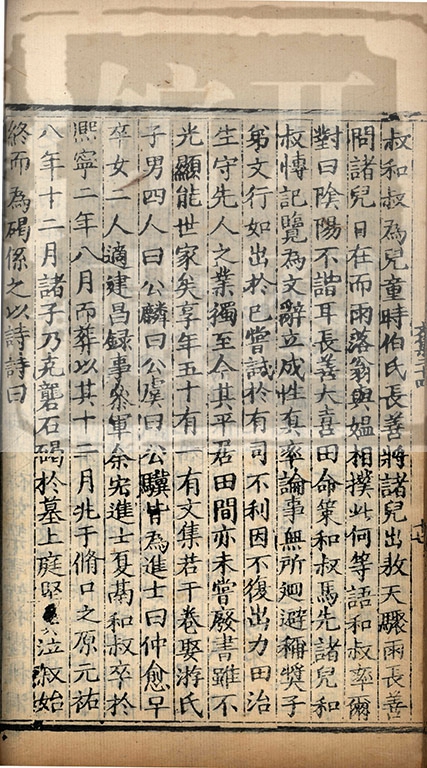 叔和叔為兒童時伯氏長善將諸兒出敖天驟雨長善
問諸兒日在而雨落翁與媼相撲此何等語和叔率爾
對曰陰陽不諧耳長善大喜因命策和叔馬先諸兒和
叔慱記覽為文辭立成性真率論事無所廻避稱奬子
弟文行如出於巳嘗試於有司不利因不復出力田治
生守先人之業獨至今其平居田間亦未嘗廢書雖不
光顯能世家矣享年五十有一有文集若干卷娶游氏
子男四人曰公麟曰公虔曰公驥皆為進士曰仲愈早
卒女二人適建昌録事叅軍余宏進士夏萬和叔卒於
熈寧二年八月而葬以其十二月兆于脩口之原元祐
八年十二月諸子乃克礱石碣於墓上庭堅泣叔始
終而為碣係之以詩詩曰